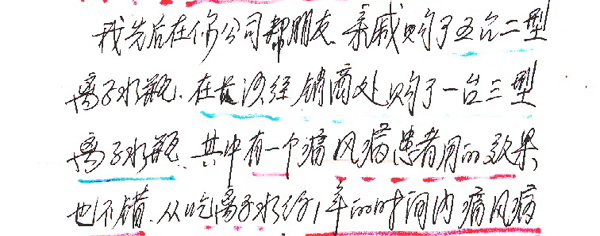 我先后在你公司帮朋友、亲戚购了五台二型
离子水瓶.在长沙经销商处购了一台三型
离子水瓶,其中有一个痛风病患者用的效果
也不错.从吃离子水约1年的时间内痛风病